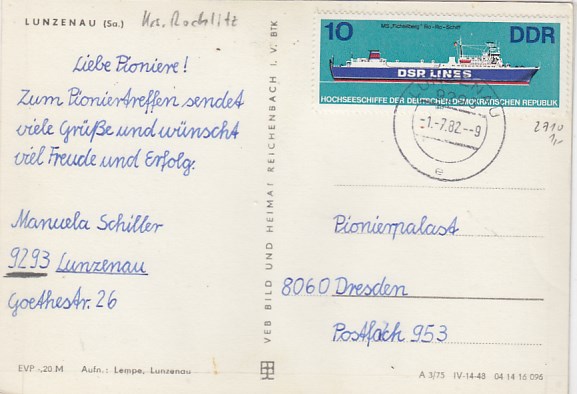 LUNZENAU (Sa.) Krs. Rochlitz
Liebe Pioniere!
Zum Pioniertreffen sendet
viele Grüße und wünscht
viel Freude und Erfolg.
Manuela Schiller
9293 Lunzenau
Goethestr. 26
EVP -,20 M Aufn.: Lempe, Lunzenau
VEB BILD UND HEIMAT REICHENBACH I. V. BTK
10 MS „Fichtelberg" Ro-Ro-Schiff DDR
DSR LINES
HOCHSEESCHIFFE DER DEUTSCHEN DEMOKRATISCHEN REPUBLIK
LUNZENAU
-1.-7.82.--9
e
2710
1,-
Pionierpalast
8060 Dresden
Postfach 953
A 3/75 IV-14-48 04 14 16 096